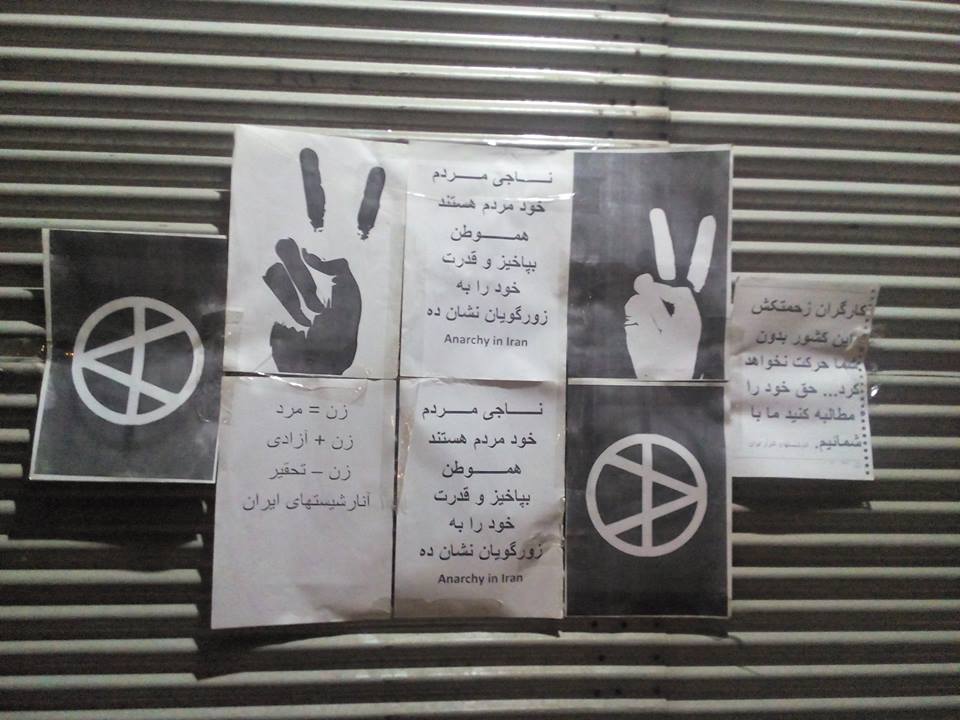 نـــاجی مـــردم
خود مردم هستند
همـــــوطن
بپاخیز و قدرت
خود را به
زورگویان نشان ده
Anarchy in Iran
کارگران زحمتکش
این کشور بدون
شما حرکت نخواهد
کرد... حق خود را
مطالبه کنید ما با
شمائیم.
زن = مرد
زن + آزادی
زن – تحقیر
آنارشیستهای ایران
نـــاجی مـــردم
خود مردم هستند
همـــــوطن
بپاخیز و قدرت
خود را به
زورگویان نشان ده
Anarchy in Iran